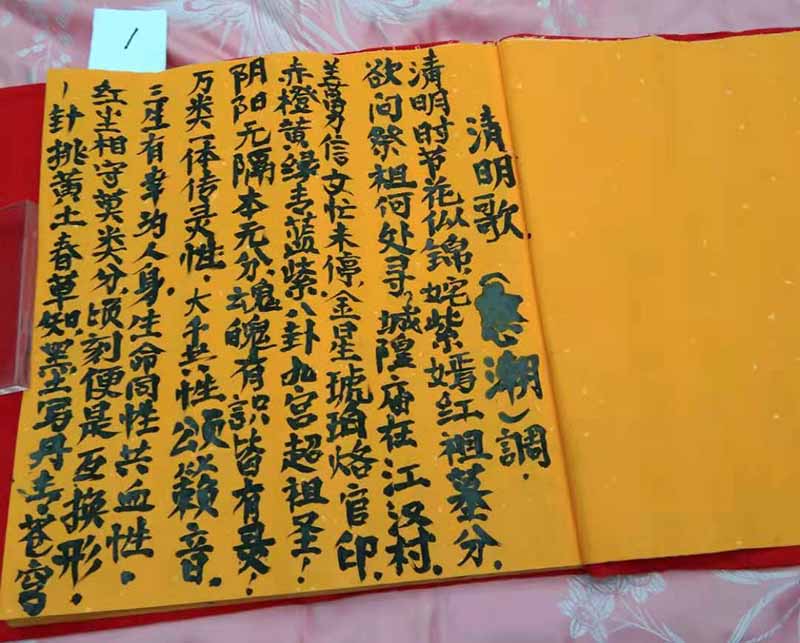 1
清明歌(悲潮)調.
清明时节花似锦,姹紫嫣红祖墓分.
欲问祭祖何处寻?城隍庙在江汉村.
善勇信文忙未停,金星琥珀烙官印.
赤橙黄缘青蓝紫,八卦九宫超祖圣!
阴阳元隔本元分,魂魄有识皆有灵!
万类一体传灵性.大千共性颂籁音.
三生有幸为人身,生命同性共血性.
红尘相守莫类分,顷刻便是互换形.
一卦挑黄土春草知.黑尘写丹青苍穹